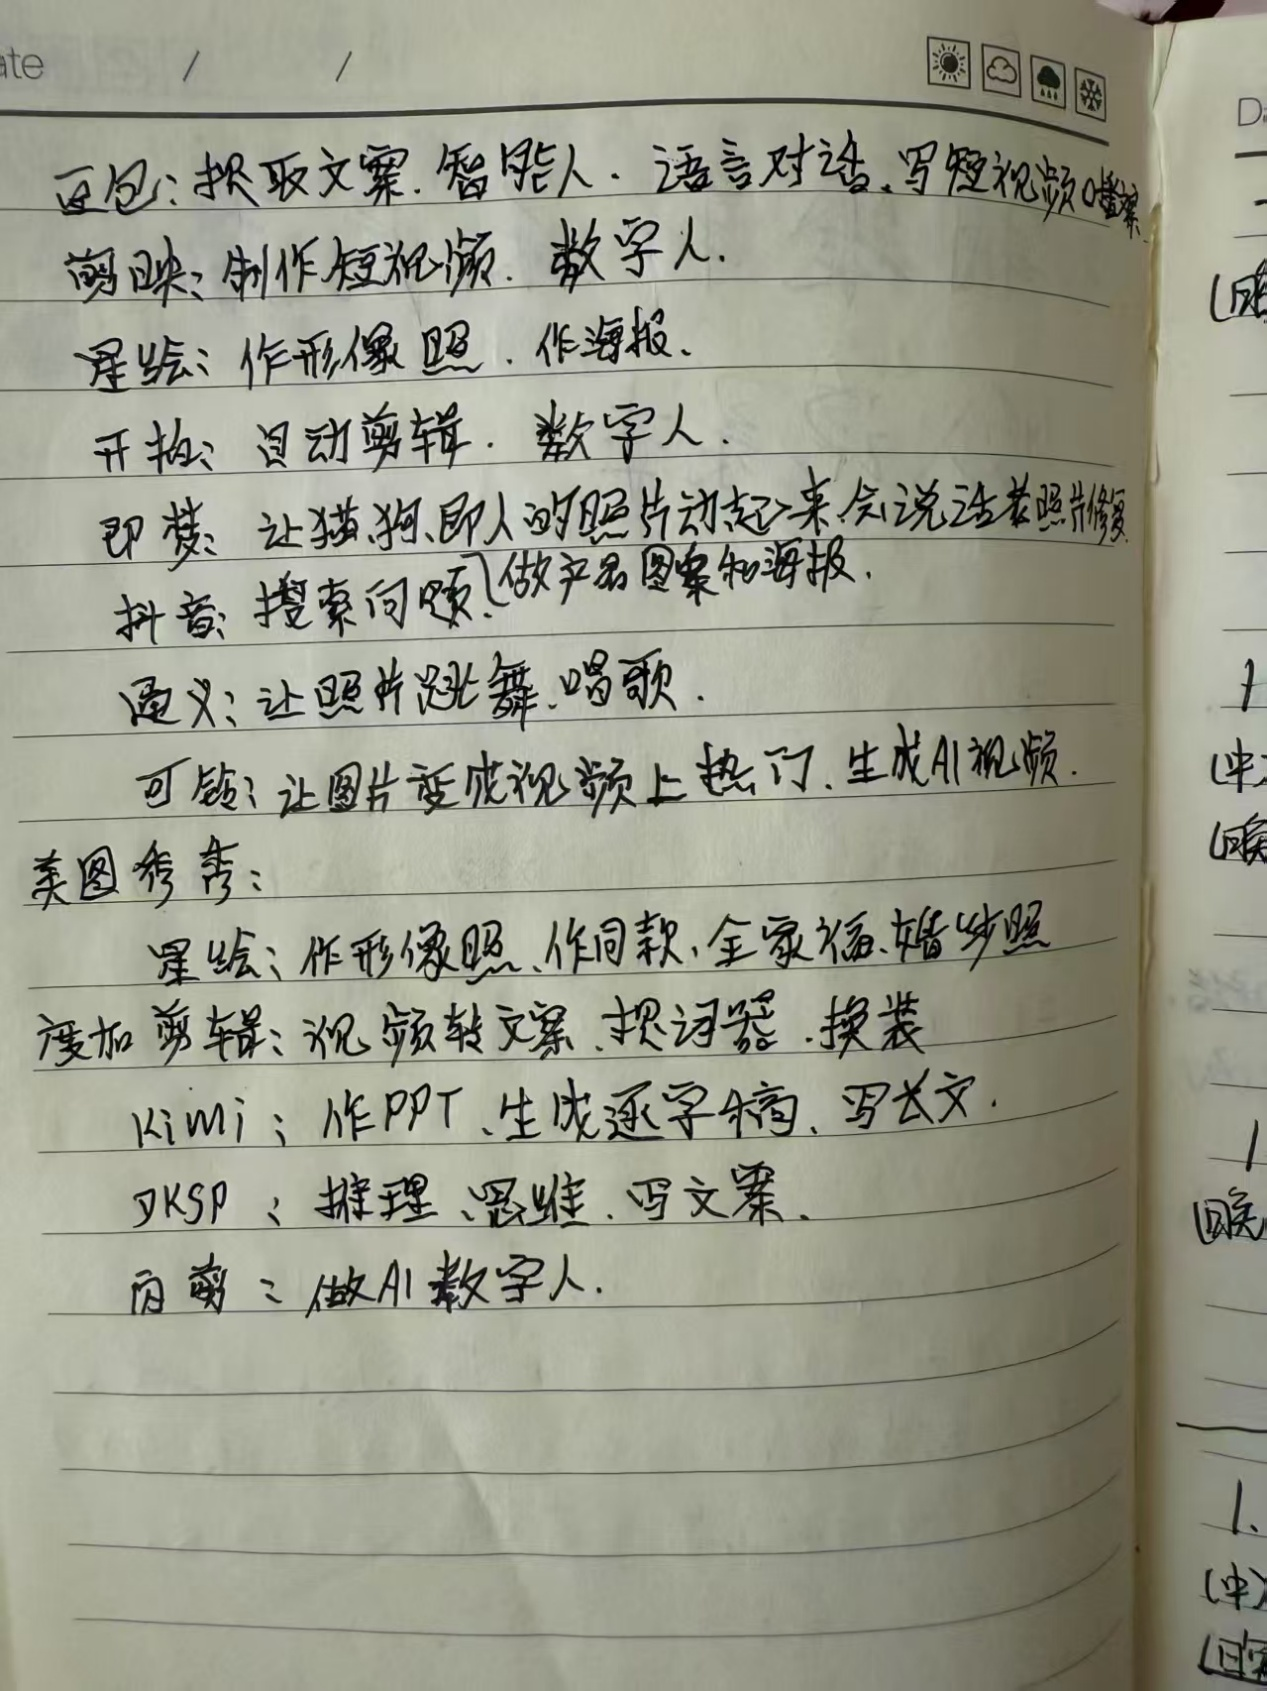 ate / /
豆包：提取文案.智能人.语言对话、写短视频口播文案.
剪映：制作短视频.数字人.
星绘：作形像照.作海报、
开拍：自动剪辑.数字人.
即梦：让猫、狗、即人的照片动起来、会说话老照片修复.
做产品图案和海报.
抖音：搜索问题.
通义：让照片跳舞、唱歌.
可铃：让图片变成视频上热门、生成AI视频.
美图秀秀：
星绘：作形像照、作同款、全家福、婚纱照
度加剪辑：视频转文案、提词器.换装
Kimi：作PPT、生成逐字稿、写长文.
DKSP：推理、思维.写文案、
闪剪：做AI数字人.